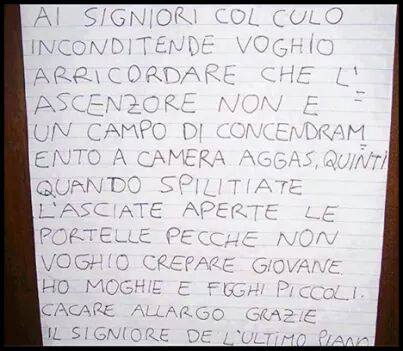 AI SIGNIORI COL CULO
INCONDITENDE VOGHIO
ARRICORDARE CHE L'
ASCENZORE NON E
UN CAMPO DI CONCENDRAM
ENTO A CAMERA AGGAS, QUINTI
QUANDO SPILITIATE
L'ASCIATE APERTE LE
PORTELLE PECCHE NON
VOGHIO CREPARE GIOVANE.
HO MOGHIE E FIGHI PICCOLI.
CACARE ALLARGO GRAZIE
IL SIGNIORE DE L'ULTIMO PIANO